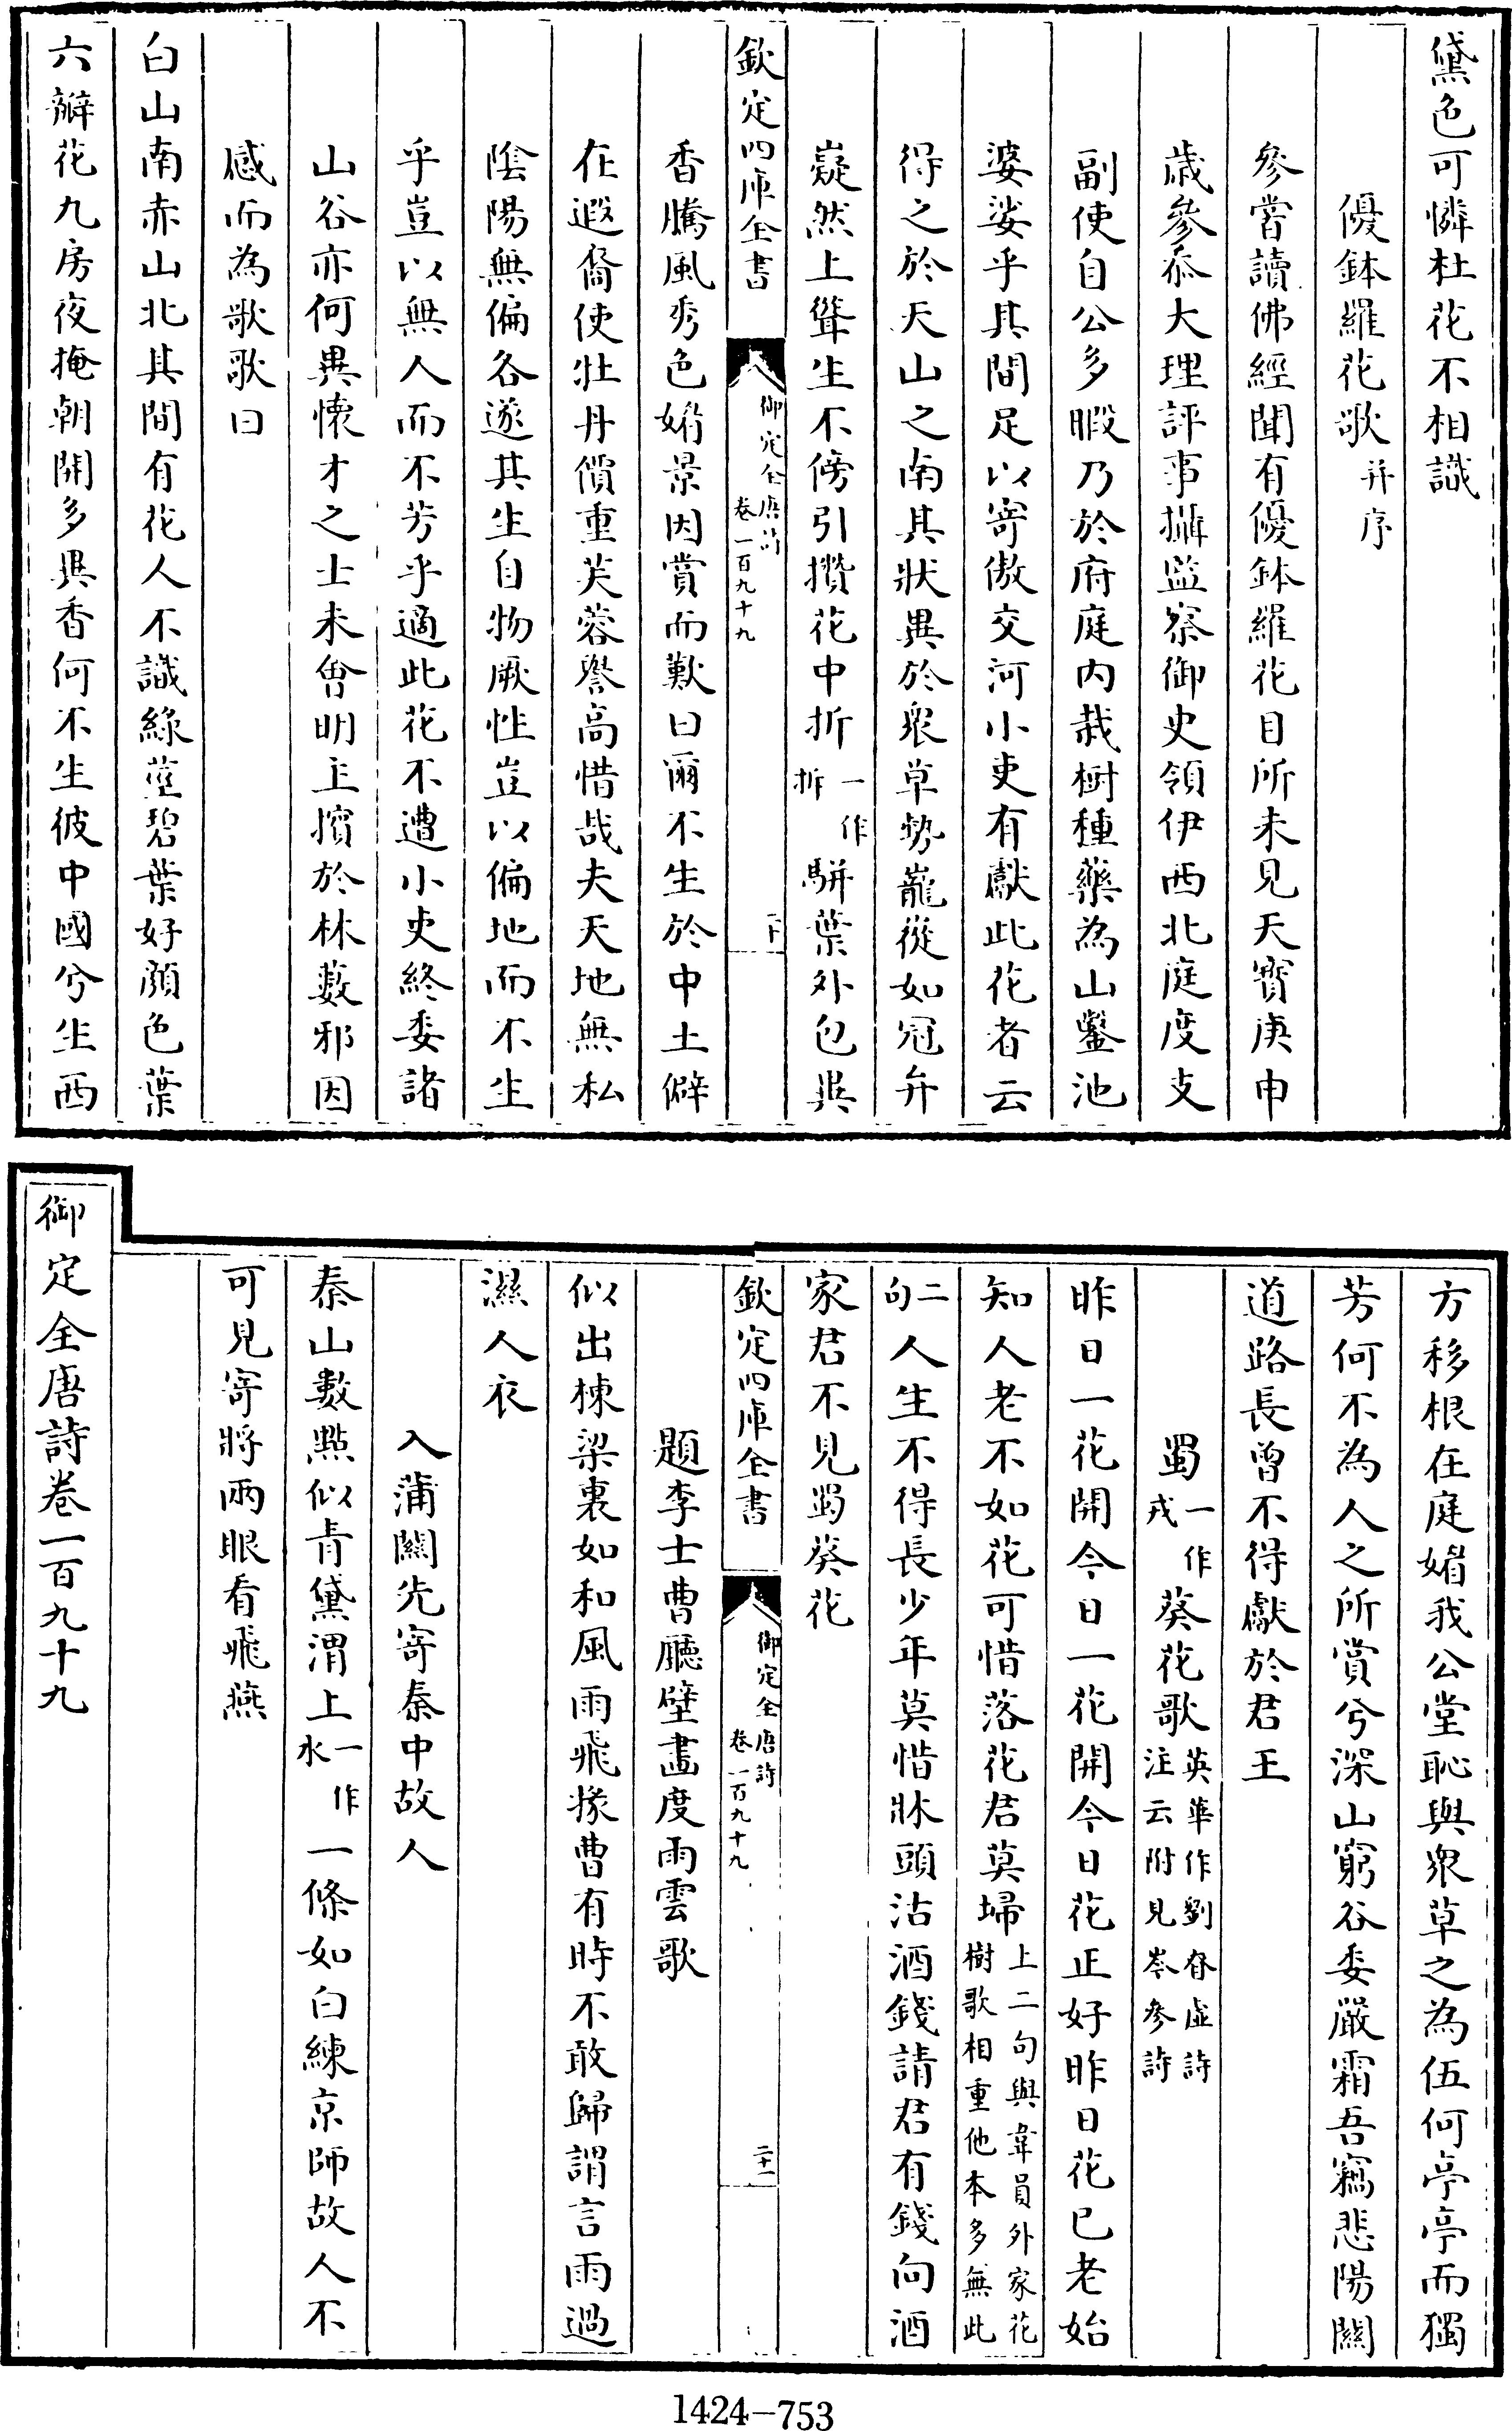 黛色可憐杜花不相識
優鉢羅花歌并序
參嘗讀佛經聞有優鉢羅花目所未見天寶庚申
歲參忝大理評事攝監察御史領伊西北庭度支
副使自公多暇乃於府庭内栽樹種藥為山鑿池
婆娑乎其間足以寄傲交河小吏有獻此花者云
得之於天山之南其狀異於衆草勢巃嵸如冠弁
嶷然上聳生不傍引攢花中折一作拆駢葉外包異
欽定四庫全書 御定全唐詩 卷一百九十九
香騰風秀色媚景因賞而歎曰爾不生於中土僻
在遐裔使牡丹價重芙蓉譽高惜哉夫天地無私
陰陽無偏各遂其生自物厥性豈以偏地而不生
乎豈以無人而不芳乎適此花不遭小吏終委諸
山谷亦何異懷才之士未會明主擯於林藪邪因
感而為歌歌曰
白山南赤山北其間有花人不識綠莖碧葉好顔色葉
六瓣花九房夜掩朝開多異香何不生彼中國兮生西
方移根在庭媚我公堂恥與衆草之為伍何亭亭而獨
芳何不為人之所賞兮深山窮谷委嚴霜吾竊悲陽關
道路長曾不得獻於君王
蜀一作戎葵花歌英華作劉眘虛詩注云附見岑參詩
昨日一花開今日一花開今日花正好昨日花已老始
知人老不如花可惜落花君莫埽上二句與韋員外家花樹歌相重他本多無此
二句人生不得長少年莫惜牀頭沽酒錢請君有錢向酒
家君不見蜀葵花
欽定四庫全書 御定全唐詩 卷一百九十九 二十一
題李士曹廳壁畫度雨雲歌
似出棟梁裏如和風雨飛掾曹有時不敢歸謂言雨過
濕人衣
入蒲關先寄秦中故人
秦山數點似青黛渭上一作水一條如白練京師故人不
可見寄將兩眼看飛燕
御定全唐詩卷一百九十九
1424-753